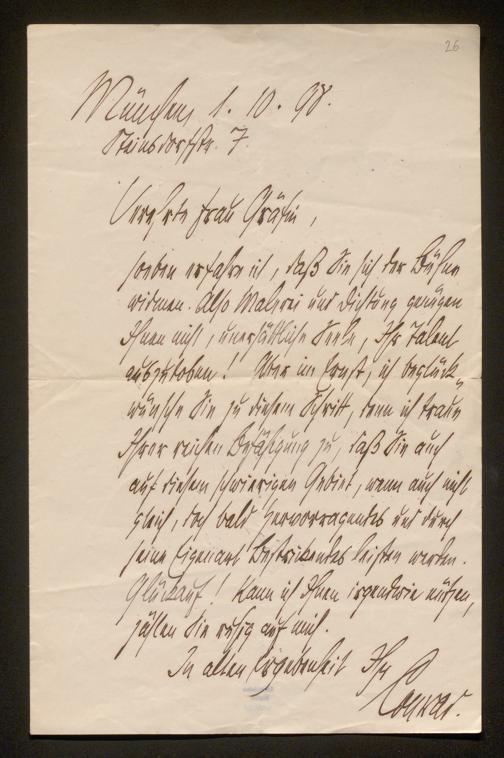 26
München, 1. 10. 98.
Steinsdorfstr. 7.
Verehrte Frau Gräfin,
soeben erfahre ich, daß Sie sich der Bühne
widmen. Also Malerei und Dichtung genügen
Ihnen nicht, unersättliche Seele, Ihr Talent
auszutoben! Aber im Ernst, ich beglück-
wünsche Sie zu diesem Schritt, denn ich traue
Ihrer reichen Befähigung zu, daß Sie auch
auf diesem schwierigen Gebiet, wenn auch nicht
gleich, doch bald Hervorragendes und durch
seine Eigenart Bestrickendes leisten werden.
Glückauf! Kann ich Ihnen irgendwie nützen,
zählen Sie ruhig auf mich.
In alter Ergebenheit Ihr
Conrad.